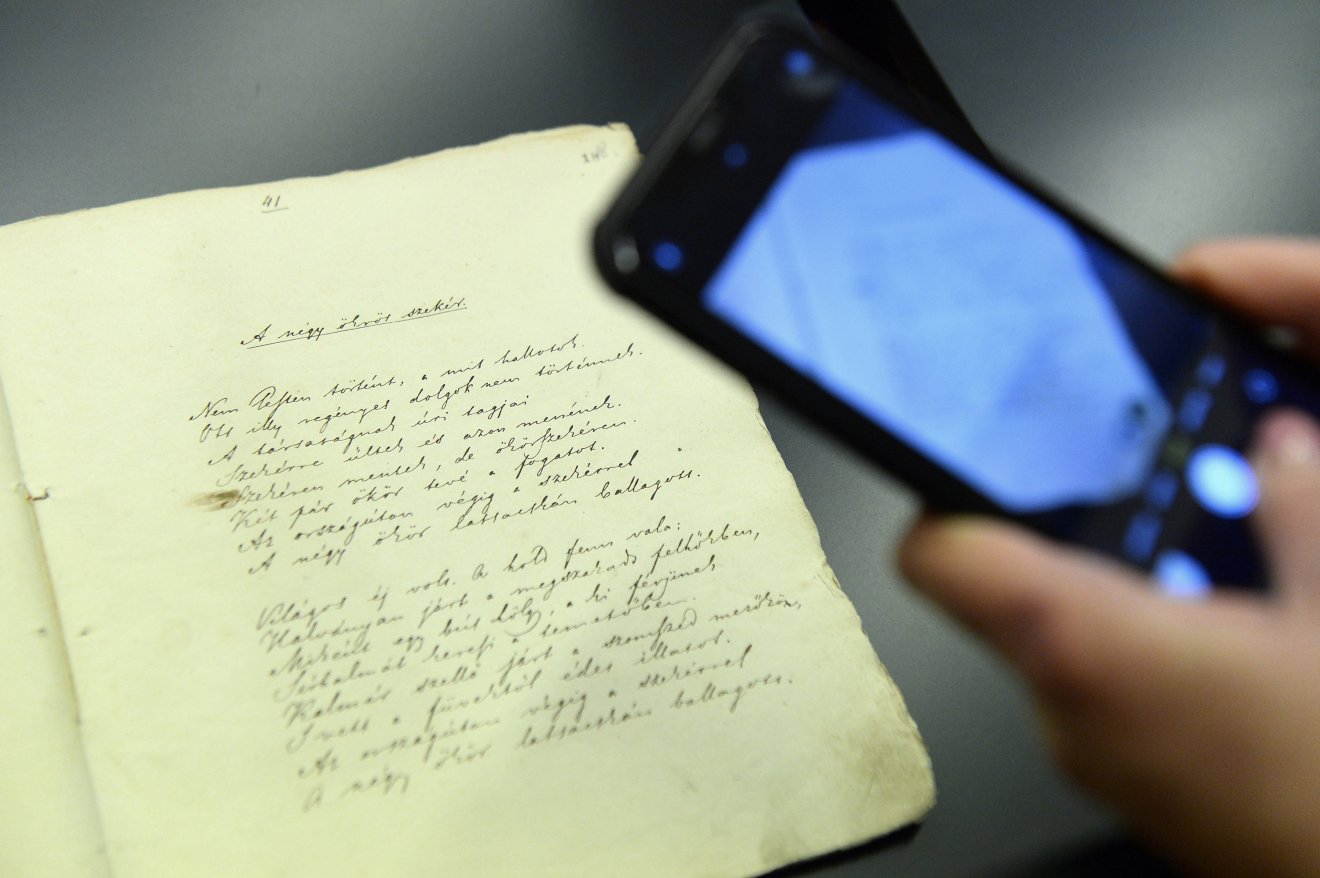 41
A négy ökrös szekér.
Nem Pesten történt, a mit hallotok.
Ott illy regényes dolgok nem történnek.
A társaságnak úri tagjai
Szekérre ültek és azon menének.
Szekéren mentek, de ökörszekéren.
Két pár ökör tevé a fogatot.
Az országúton végig a szekérrel
A négy ökör lassacskán ballagott.
Világos éj volt. A hold fenn vala;
Halványan járt a megszakadt felhőkben,
Miként egy bús hölgy, a ki férjének
Sírhalmát keresi a temetőben.
Kalmár szellő járt a szomszéd mezőkön,
S vett a füvektől édes illatot.
Az országúton végig a szekérrel
A négy ökör lassacskán ballagott.